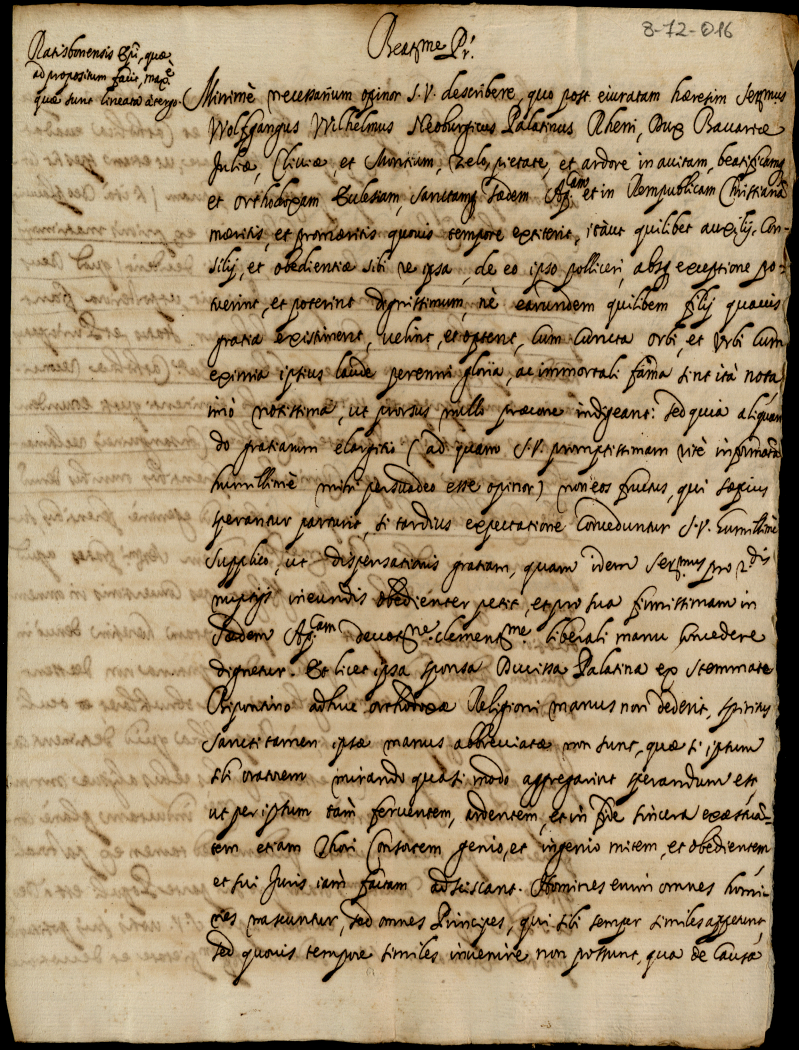 8-72-016
Ratisbonensis Epi, quæ
ad propositum faciū, maxè
quæ sunt lineata à tergo.
Beatme Pr.
Minimè necessarium opinor S.V. describere, quo post eiuratam hæresim Sermus
Wolfgangus Wilhelmus Neoburgicus Palatinus Rheni, Dux Bavariæ
Juliæ, Cliviæ, et Montium, zelo, pietate, et ardore in avitam, beatificamq
et orthodoxam Ecclesiam, sanctamq Sedem Ap.cam et in Rempublicam Christianā
mæritis, et promæritis quovis tempore extiterit, itàut quilibet auxilij, Con-
silij, et obedientiæ sibi re ipsa, de eo ipso polliceri, absq exceptione po-
tuerint, et poterint dignissimum, nè earundem quilibem filij quavis
gratia existiment, velint, et optent, cum cuncta orbi, et Urbi cum
eximia ipsius laude perenni gloria, ac immortali fama sint ità nota
imò notissima, ut prorsus nullo præcone indigeant: sed quia aliquan
do gratiarum elargitio (ad quam S.V. promptissimam ritè informatā
humillimè mihi persuadeo esse opinor) non eos fructus, qui sæpius
sperantur parturit, si tardius expectatione conceduntur S.V. humillimè
supplico, ut dispensationis gratiam, quam idem Sermus pro 2.dis
nuptijs ineundis obedienter petit, et pro sua firmissimam in
Sedem Ap.cam devotne. clementme. liberali manu concedere
dignetur. Et licet ipsa sponsa Ducissa Palatina ex Stemmate
Bipontino adhuc orthodoxæ Religioni manus non dederit, spiritus
sancti tamen ipsæ manus abbreviatæ non sunt, quæ si ipsum
sibi oratorem mirando quasi modo aggregarint sperandum est
ut per ipsum tàm ferventem, ardentem, et in fide sincera exæstuan-
tem etiam Thori Consortem genio, et ingenio mitem, et obedientem
et sui Juris iam factam adsciscant. Homines enim omnes homi-
nes nascuntur, sed omnes Principes, qui sibi semper similes appetunt,
sed quovis tempore similes invenire non possunt, qua de causa